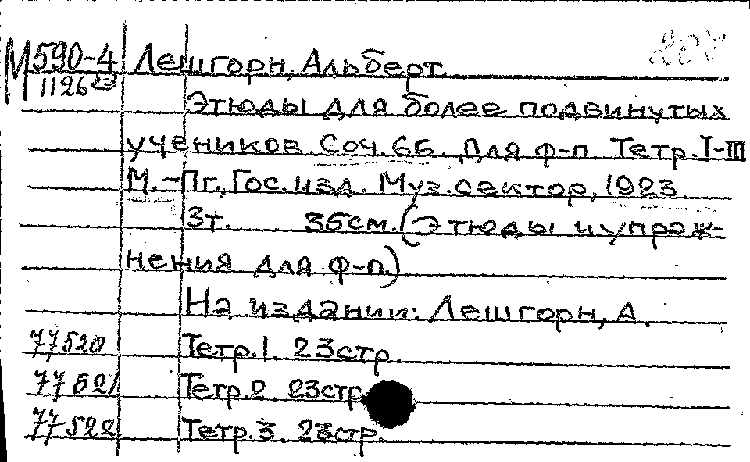 М590-4 Лешгорн, Альберт.
1126
Этюды для более подвинутых
учеников. Соч. 66. Для ф-п. Тетр. I-III
М.-Пг., Гос. изд. Муз. сектор, 1923.
3т. 35см. (Этюды и упраж-
нения для ф-п.)
На издании: Лешгорн, А.
77520 Тетр. 1. 23стр.
77521 Тетр. 2. 23стр
77522 Тетр. 3. 23стр.